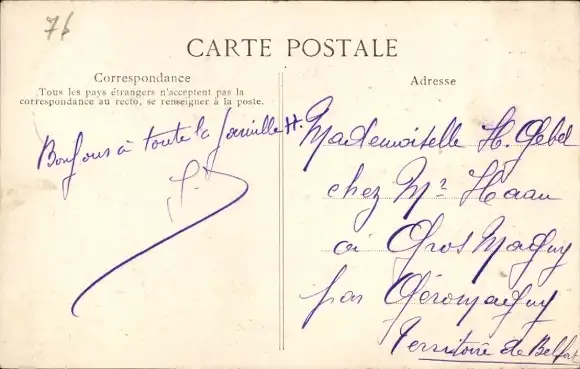 76
CARTE POSTALE
Correspondance
Tous les pays étrangers n'acceptent pas la
correspondance au recto, se renseigner à la poste.
Adresse
Bonjour à toute la famille H.
Mademoiselle H. Gebel
chez Mr Haan
à Gros Magny
par Géromagny
Territoire de Belfort